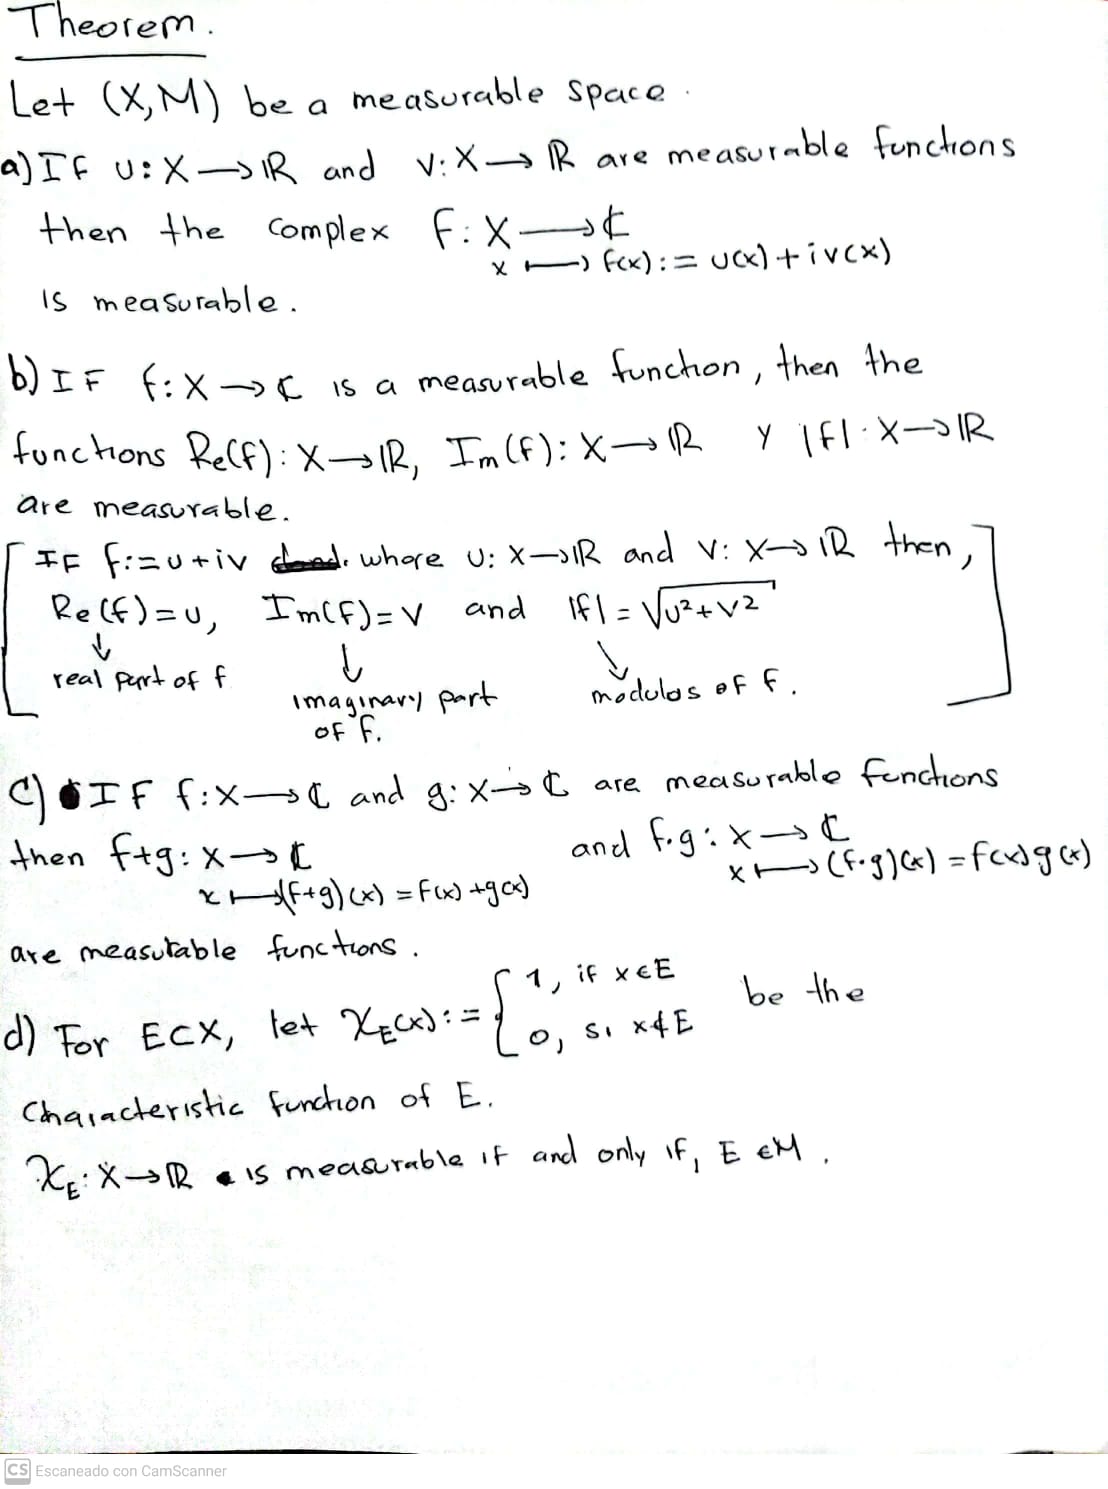 Theorem.
Let (X,M) be a measurable space.
a) If u: X → ℝ and v: X → ℝ are measurable functions
then the complex f: X → ℂ
x ↦ f(x) := u(x) + iv(x)
is measurable.
b) IF f: X → ℂ is a measurable function, then the
functions Re(f): X → ℝ, Im(f): X → ℝ y |f|: X → ℝ
are measurable.
[ IF f := u + iv where u: X → ℝ and v: X → ℝ then, ]
Re(f) = u, Im(f) = v and |f| = √(u² + v²)
↓ ↓ ↘
real part of f imaginary part modulos of f.
of f.
c) IF f: X → ℂ and g: X → ℂ are measurable functions
then f+g: X → ℂ and f·g: X → ℂ
x ↦ (f+g)(x) = f(x) + g(x) x ↦ (f·g)(x) = f(x)g(x)
are measurable functions.
d) For E⊂X, let χ_E(x) := { 1, if x∈E be the
0, si x∉E
Characteristic function of E.
χ_E: X → ℝ is measurable if and only if, E ∈ M.
CS Escaneado con CamScanner